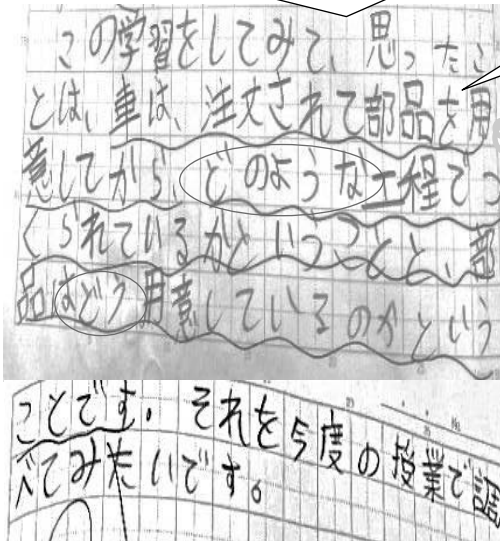 この学習をしてみて、思ったこ
とは、車は、注文されて部品を用
意してから、どのような工程でつ
くられているかということと、部
品はどう用意しているのかという
ことです。それを今度の授業で調
べてみたいです。